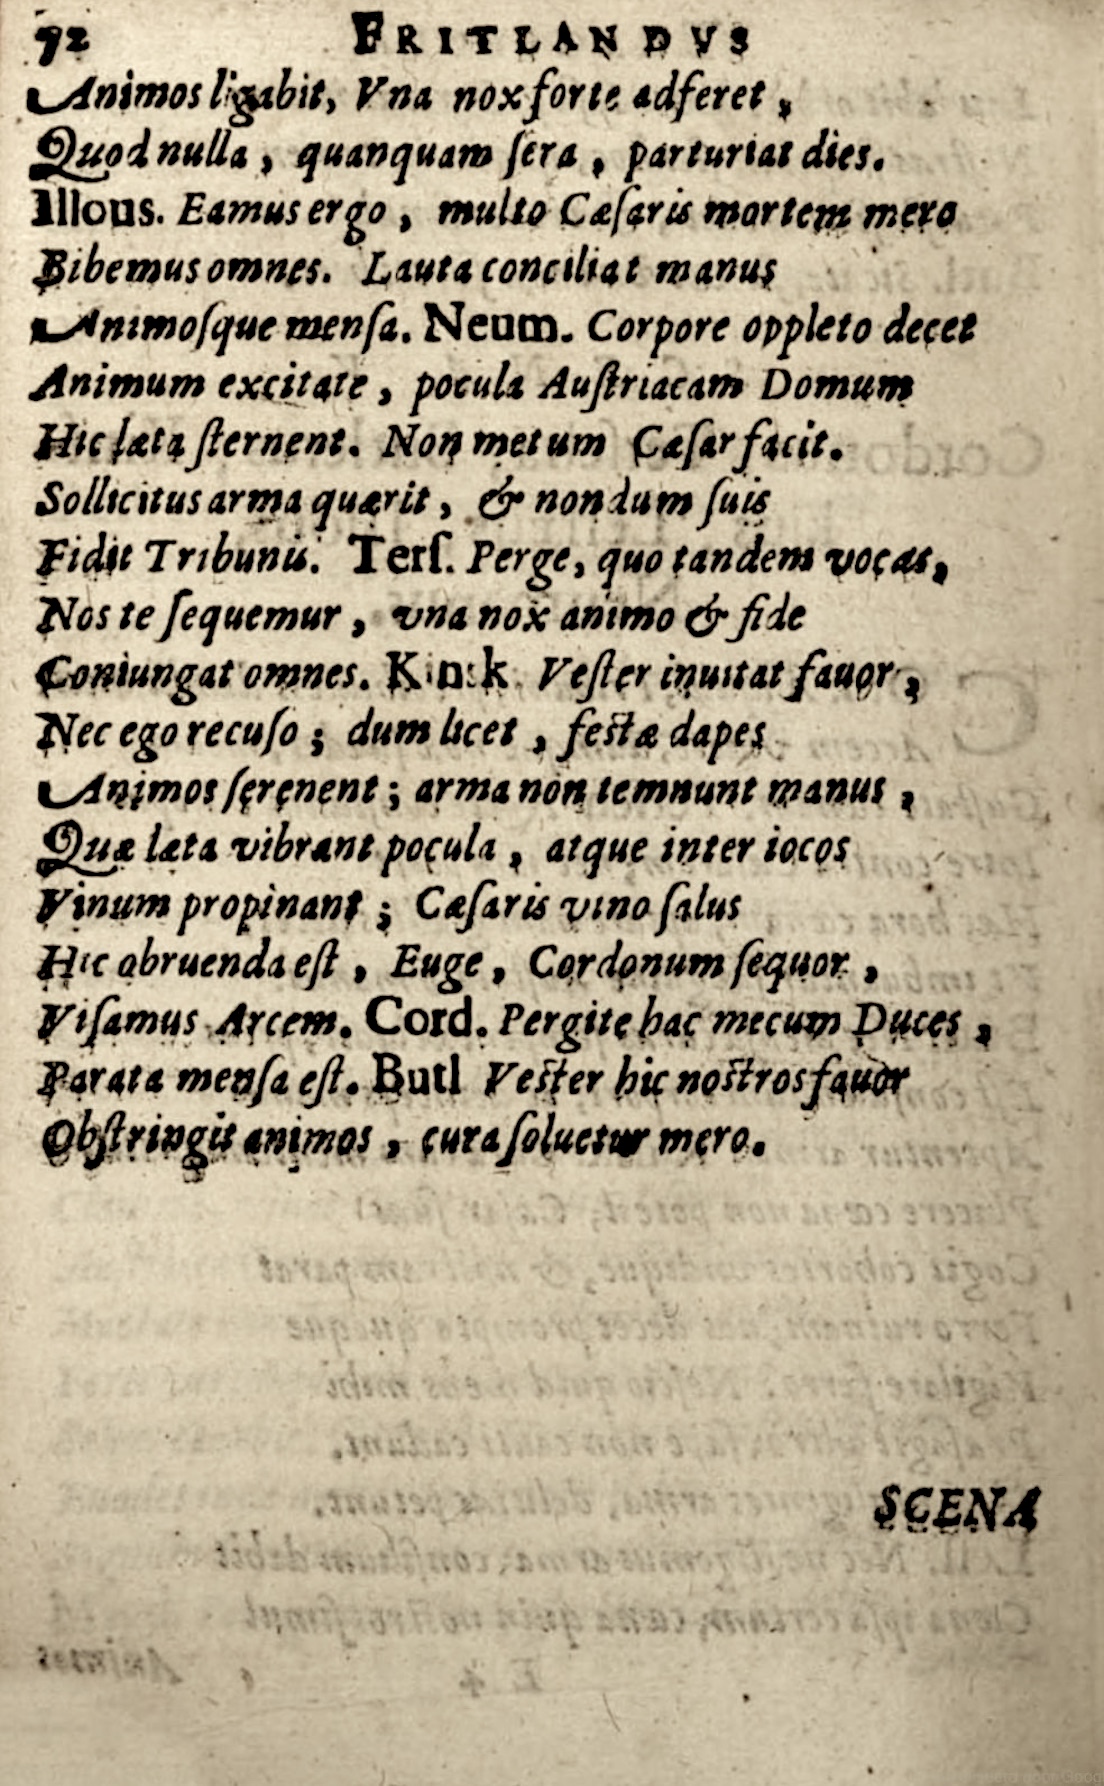 72 FRITLANDVS
Animos ligabit, Vna nox forte adferet,
Quod nulla, quanquam ſera, parturiat dies.
Illous. Eamus ergo, multo Cæſaris mortem mero
Bibemus omnes. Lauta conciliat manus
Animoſque menſa. Neum. Corpore oppleto decet
Animum excitate, pocula Auſtriacam Domum
Hic læta ſternent. Non metum Cæſar facit.
Sollicitus arma quærit, & nondum ſuis
Fidit Tribunis. Terſ. Perge, quo tandem vocas,
Nos te ſequemur, vna nox animo & fide
Coniungat omnes. Kinſk. Veſter inuitat fauor,
Nec ego recuſo; dum licet, feſtæ dapes
Animos ſerenent; arma non temnunt manus,
Quæ læta vibrant pocula, atque inter iocos
Vinum propinant; Cæſaris vino ſalus
Hic obruenda eſt, Euge, Cordonum ſequor,
Viſamus Arcem. Cord. Pergite hac mecum Duces,
Parata menſa eſt. Butl Veſter hic noſtros fauor
Obſtringit animos, cura ſoluetur mero.
SCENA